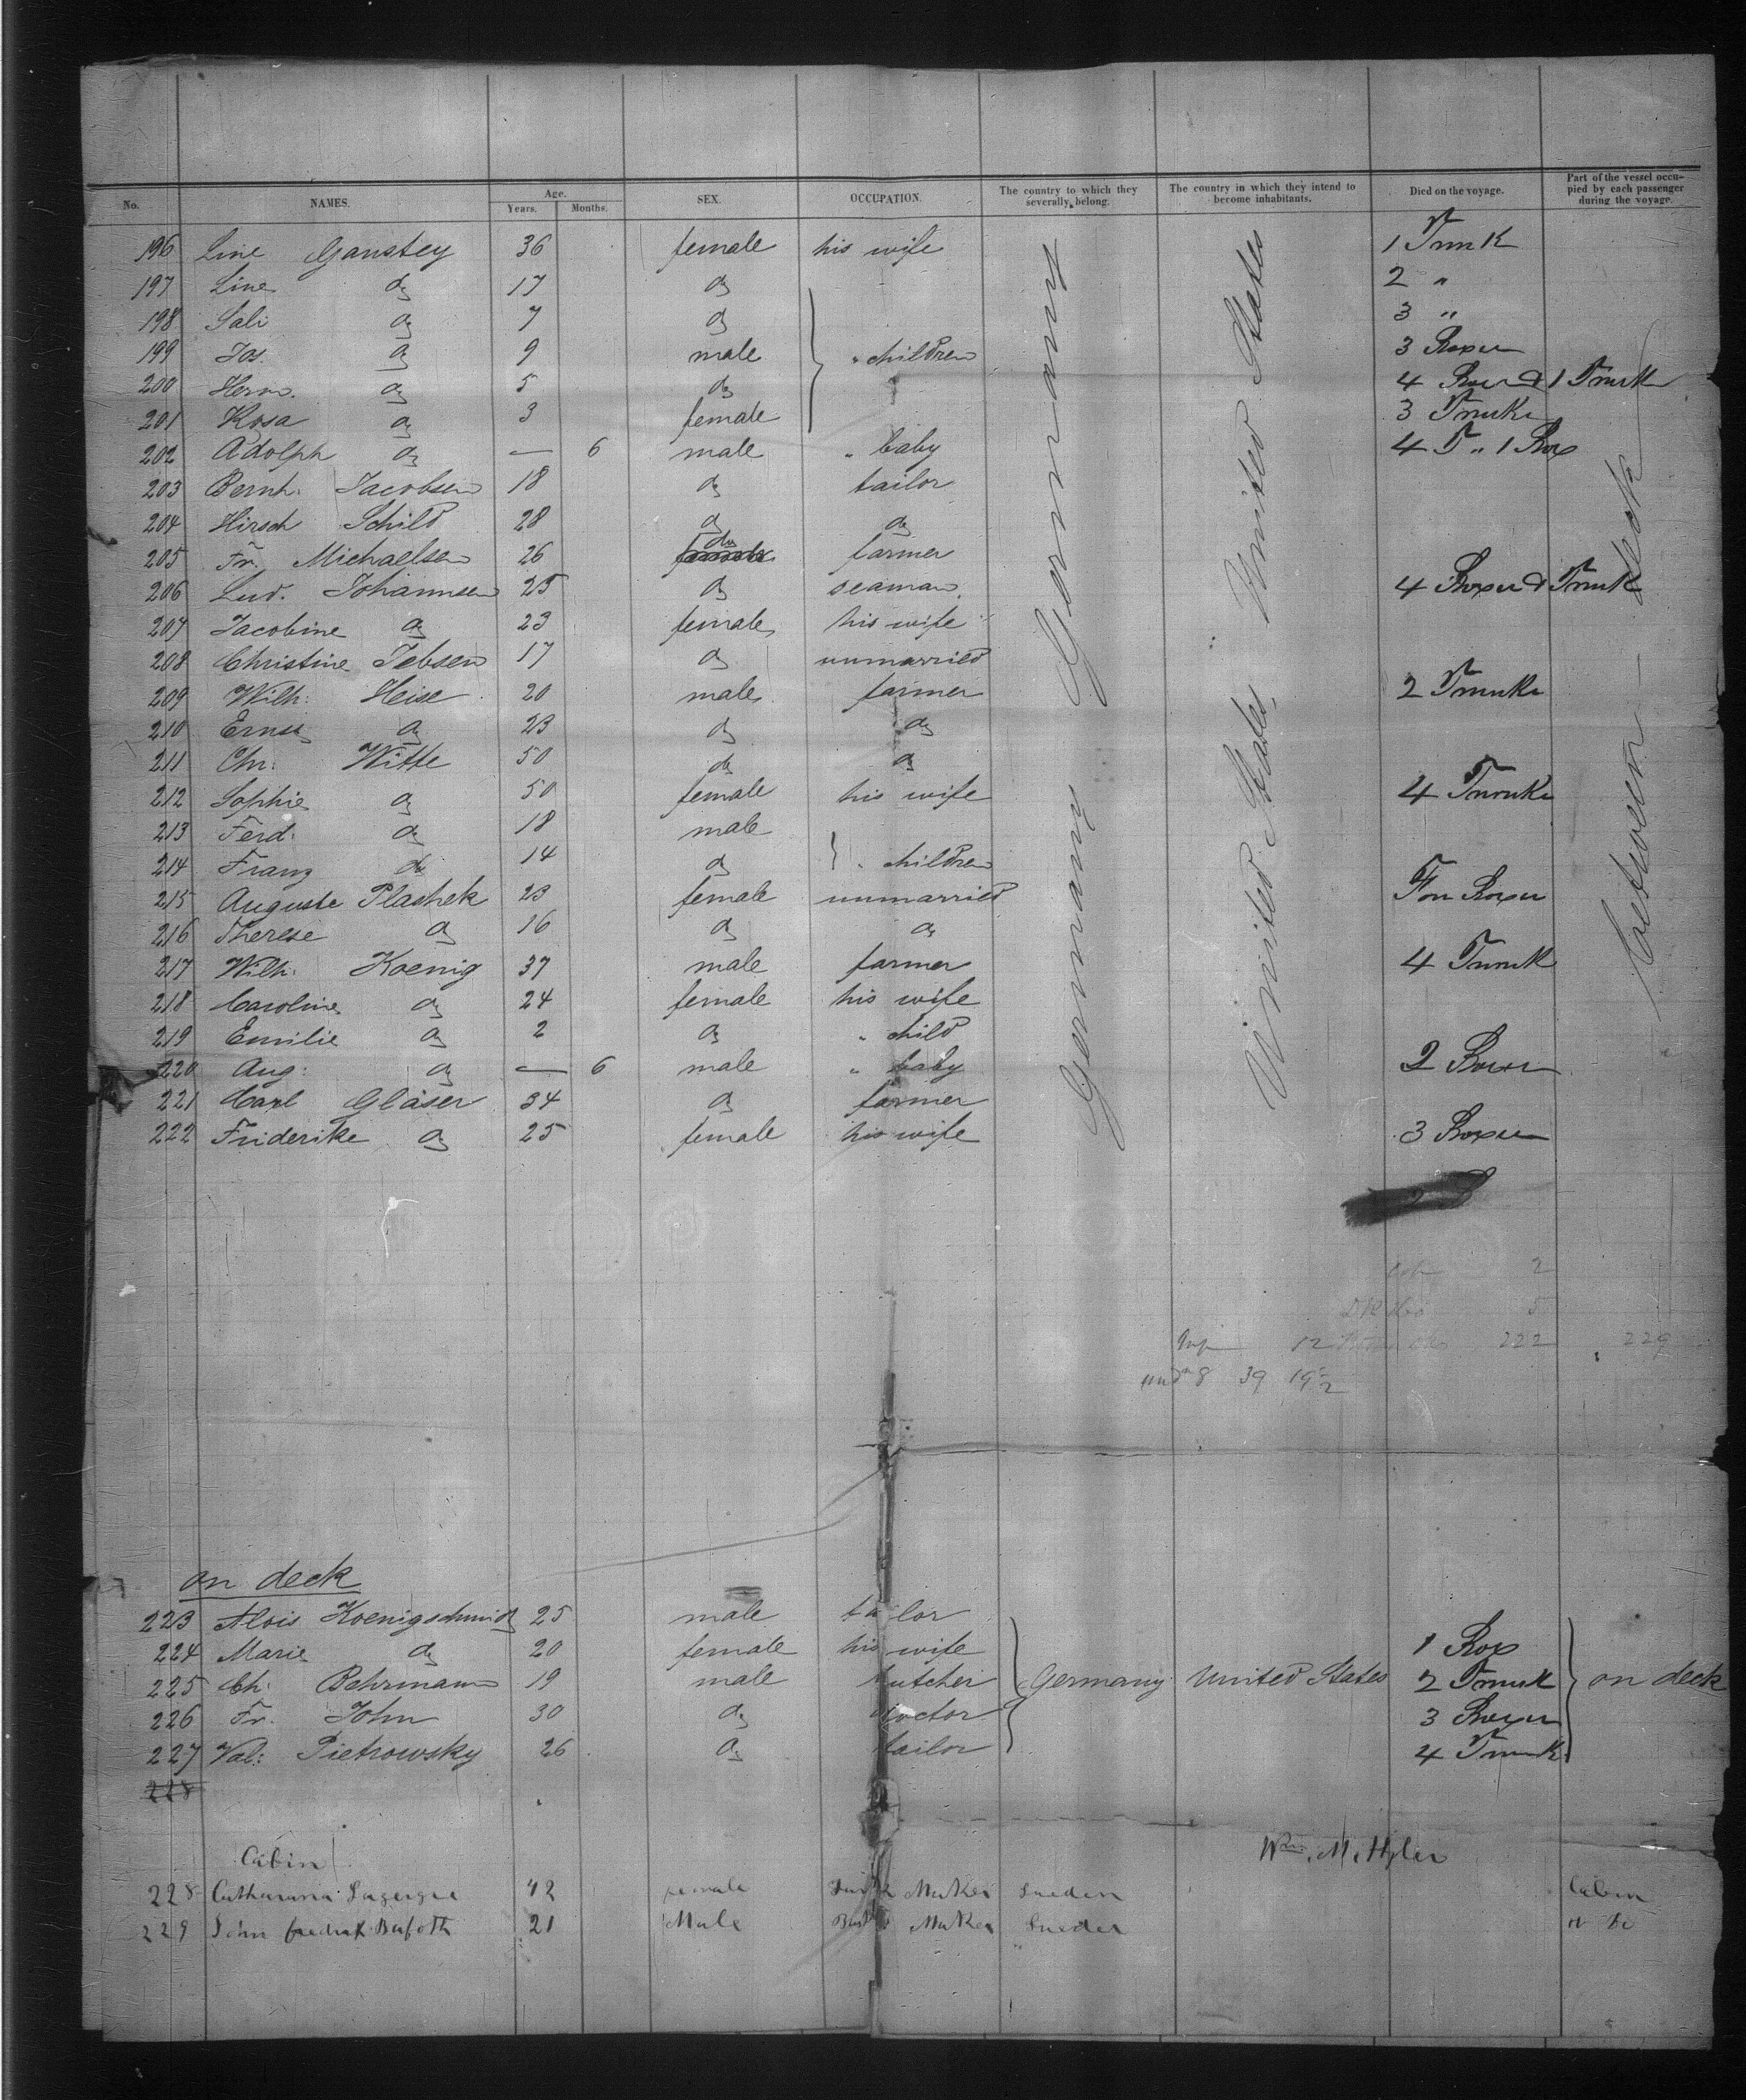 No. NAMES. Age. Years. Months. SEX. OCCUPATION. The country to which they severally belong. The country in which they intend to become inhabitants. Died on the voyage. Part of the vessel occupied by each passenger during the voyage.
196 Line Ganstey 36 female his wife 1 Trunk
197 Line do 17 do 2 "
198 Sali do 7 do 3 "
199 Jos. do 9 male " children 3 Boxes
200 Herm. do 5 do 4 Boxes & 1 Trunk
201 Rosa do 3 female 3 Trunks
202 Adolph do — 6 male " baby 4 T " 1 Box
203 Bernh. Jacobsen 18 do tailor
204 Hirsch Schild 28 do do
205 Fr. Michaelsen 26 do farmer
206 Lud. Johannsen 25 do seaman 4 Boxes & Trunk
207 Jacobine do 23 female his wife
208 Christine Jebsen 17 do unmarried
209 Wilh: Heise 20 male farmer 2 Trunks
210 Ernst do 23 do do
211 Chr: Witte 50 do do
212 Sophie do 50 female his wife 4 Trunks
213 Ferd: do 18 male
214 Franz do 14 do " children
215 Auguste Plashek 23 female unmarried Boxes
216 Therese do 16 do do
217 Wilh: Koenig 37 male farmer 4 Trunk
218 Caroline do 24 female his wife
219 Emilie do 2 do " child
220 Aug: do — 6 male " baby 2 Boxes
221 Carl Gläser 34 do farmer
222 Friderike do 25 female his wife 3 Boxes
Germany Germany
United States, United States
between deck
2
5
12 222 229
8 39
on deck
223 Alois Koenigschmidt 25 male tailor
224 Marie do 20 female his wife 1 Box
225 Ch: Behrmann 19 male butcher Germany United States 2 Trunk on deck
226 Fr. John 30 do doctor 3 Boxes
227 Val: Pietrowsky 26 do tailor 4 Trunk
228
Wm. M. Hyler
Cabin
228 Catharina 42 female Maker Sweden Cabin
229 John fredrik 21 Male Maker Sweden